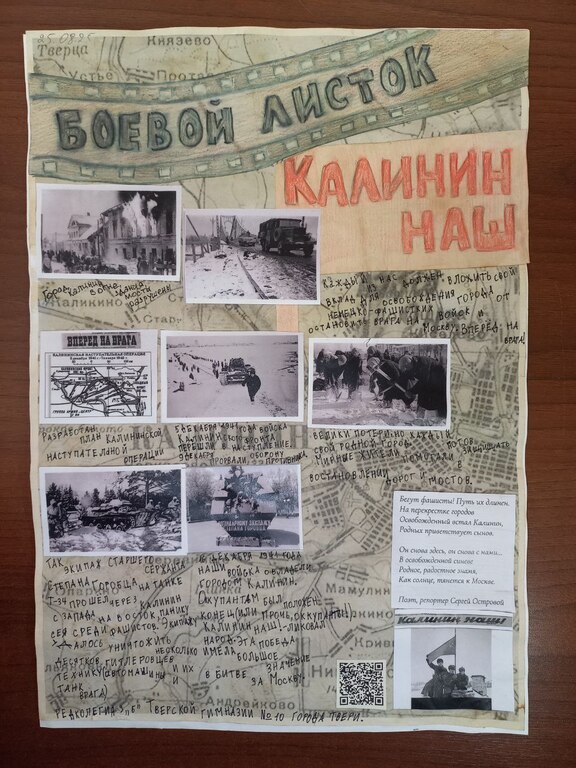 25.09.25
Тверца
Князево
Устье
БОЕВОЙ ЛИСТОК
КАЛИНИН
НАШ
Город Калинин
в огне,
разрушены
КАЖДЫЙ ИЗ НАС ДОЛЖЕН ВЛОЖИТЬ СВОЙ
ВКЛАД ДЛЯ ОСВОБОЖДЕНИЯ ГОРОДА ОТ
НЕМЕЦКО-ФАШИСТКИХ ВОЙСК И
ОСТАНОВИТЬ ВРАГА НА ПУТИ К МОСКВЕ. ВПЕРЕД, НА
ВРАГА!
ВПЕРЕД НА ВРАГА
КАЛИНИНСКАЯ НАСТУПАТЕЛЬНАЯ ОПЕРАЦИЯ
РАЗРАБОТАН
ПЛАН КАЛИНИНСКОЙ
НАСТУПАТЕЛЬНОЙ ОПЕРАЦИИ
5 ДЕКАБРЯ 1941 ГОДА ВОЙСКА
КАЛИНИНСКОГО ФРОНТА
ПЕРЕШЛИ В НАСТУПЛЕНИЕ.
ДЕКАБРЯ ПРОРВАЛИ ОБОРОНУ
ПРОТИВНИКА
ВЕЛИКИ ПОТЕРИ, НО КАЖДЫЙ ГОТОВ ЗАЩИЩАТЬ
СВОЙ РОДНОЙ ГОРОД.
МИРНЫЕ ЖИТЕЛИ ПОМОГАЛИ В
ВОСТАНОВЛЕНИИ ДОРОГ И МОСТОВ.
ТАК ЭКИПАЖ СТАРШЕГО СЕРЖАНТА
СТЕПАНА ГОРОБЦА НА ТАНКЕ
Т-34 ПРОШЕЛ ЧЕРЕЗ КАЛИНИН
С ЗАПАДА НА ВОСТОК, ПАНИКУ
СЕЯ СРЕДИ ФАШИСТОВ. ЭКИПАЖУ
УДАЛОСЬ УНИЧТОЖИТЬ НЕСКОЛЬКО
ДЕСЯТКОВ ГИТЛЕРОВЦЕВ И ИХ
ТЕХНИКУ (АВТОМАШИНУ И
ТАНК ВРАГА)
16 ДЕКАБРЯ 1941 ГОДА
НАШИ ВОЙСКА ОВЛАДЕЛИ
ГОРОДОМ КАЛИНИН.
ОККУПАНТАМ БЫЛ ПОЛОЖЕН
КОНЕЦ! ПРОЧЬ, ОККУПАНТЫ!
КАЛИНИН НАШ!-ЛИКОВАЛ
НАРОД. ЭТА ПОБЕДА
ИМЕЛА БОЛЬШОЕ ЗНАЧЕНИЕ
В БИТВЕ ЗА МОСКВУ.
Бегут фашисты! Путь их длинен.
На перекрестке городов
Освобожденный встал Калинин,
Родных приветствует сынов.
Он снова здесь, он снова с нами...
В освобожденной синеве
Родное, радостное знамя,
Как солнце, тянется к Москве.
Поэт, репортер Сергей Островой
Калинин наш!
Мамулин
Андрейково
РЕДКОЛЕГИЯ 5"Б" ТВЕРСКОЙ ГИМНАЗИИ №10 ГОРОДА ТВЕРИ.